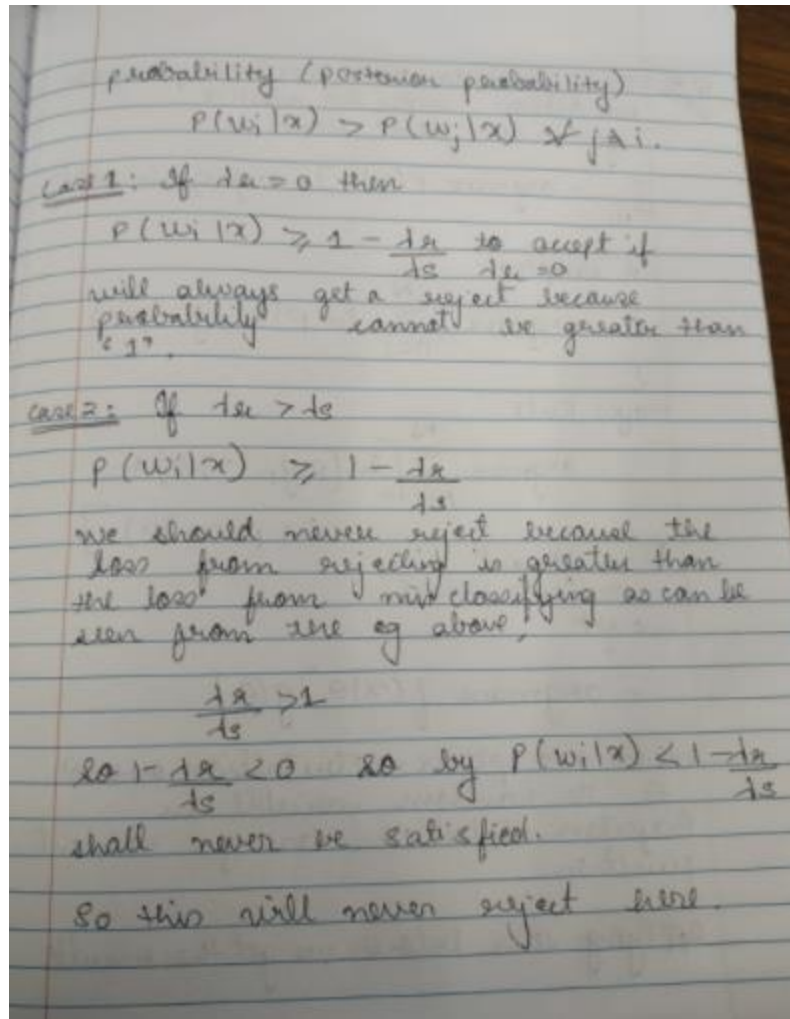 probability (posterior probability)
P(wi|x) > P(wj|x) ∀ j≠i.
case 1: If λr = 0 then
P(wi|x) ≥ 1 - λr/λs to accept if λr = 0
will always get a reject because
probability cannot be greater than
"1".
case 2: If λr > λs
P(wi|x) ≥ 1 - λr/λs
we should never reject because the
loss from rejecting is greater than
the loss from misclassifying as can be
seen from the eq above,
λr/λs > 1
so 1 - λr/λs < 0 so by P(wi|x) < 1 - λr/λs
shall never be satisfied.
So this will never reject here.